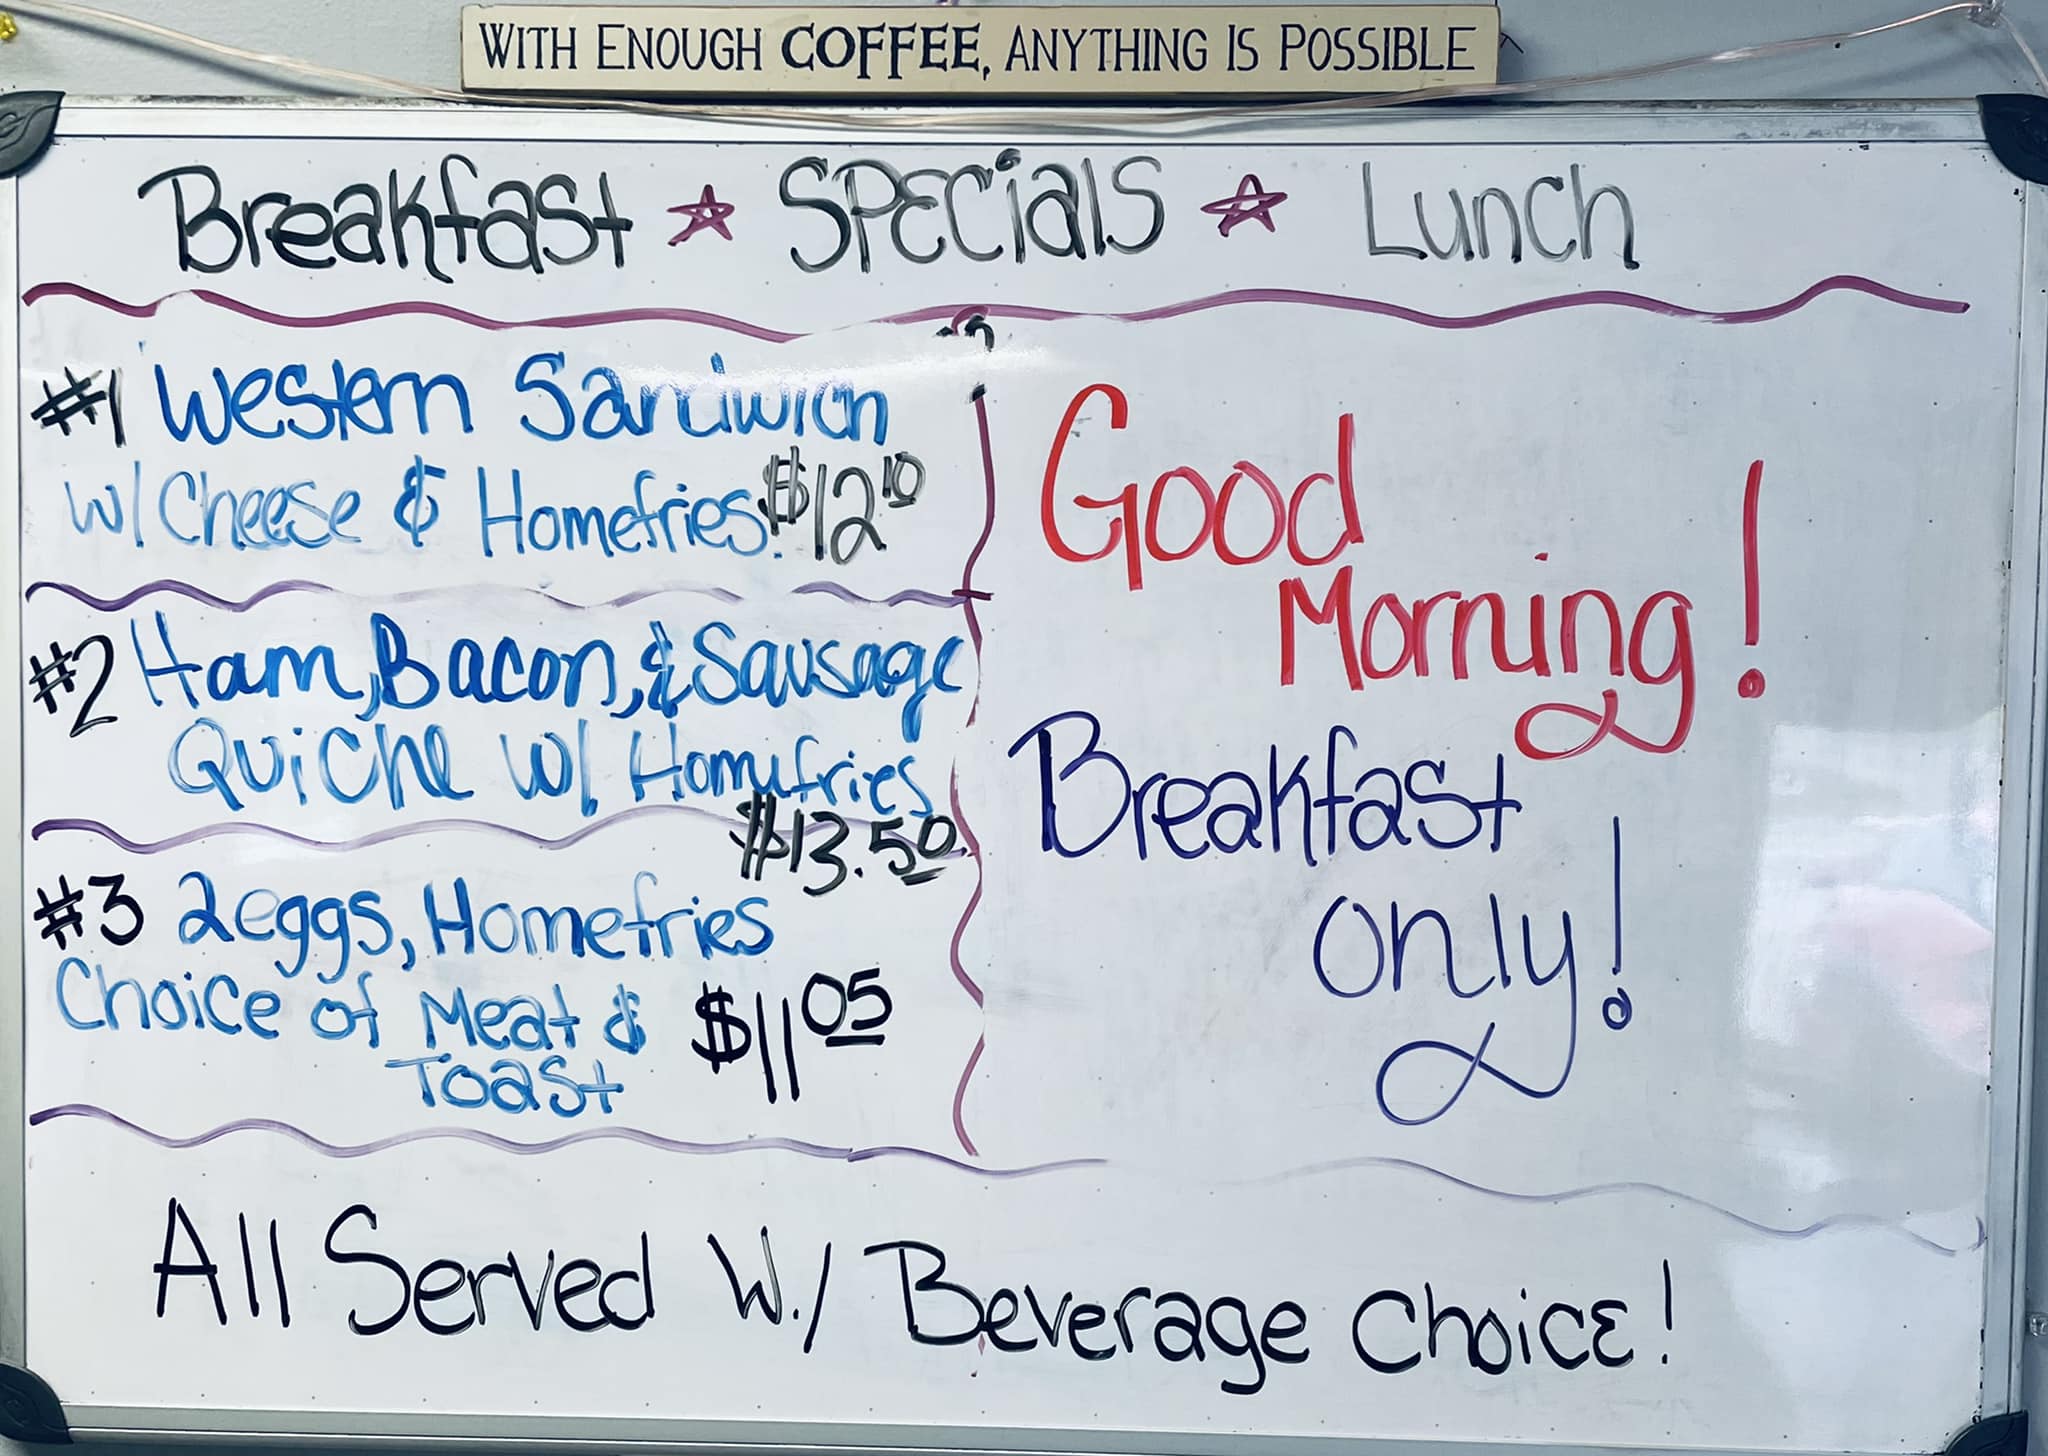 WITH ENOUGH COFFEE, ANYTHING IS POSSIBLE
Breakfast ☆ SPECials ☆ Lunch
#1 Western Sandwich
w/ Cheese & Homefries. $12 10
#2 Ham, Bacon, & Sausage
Quiche w/ Homefries
$13.50
#3 2eggs, Homefries
Choice of Meat & $11 05
Toast
Good
Morning!
Breakfast
only!
All Served W./ Beverage Choice!